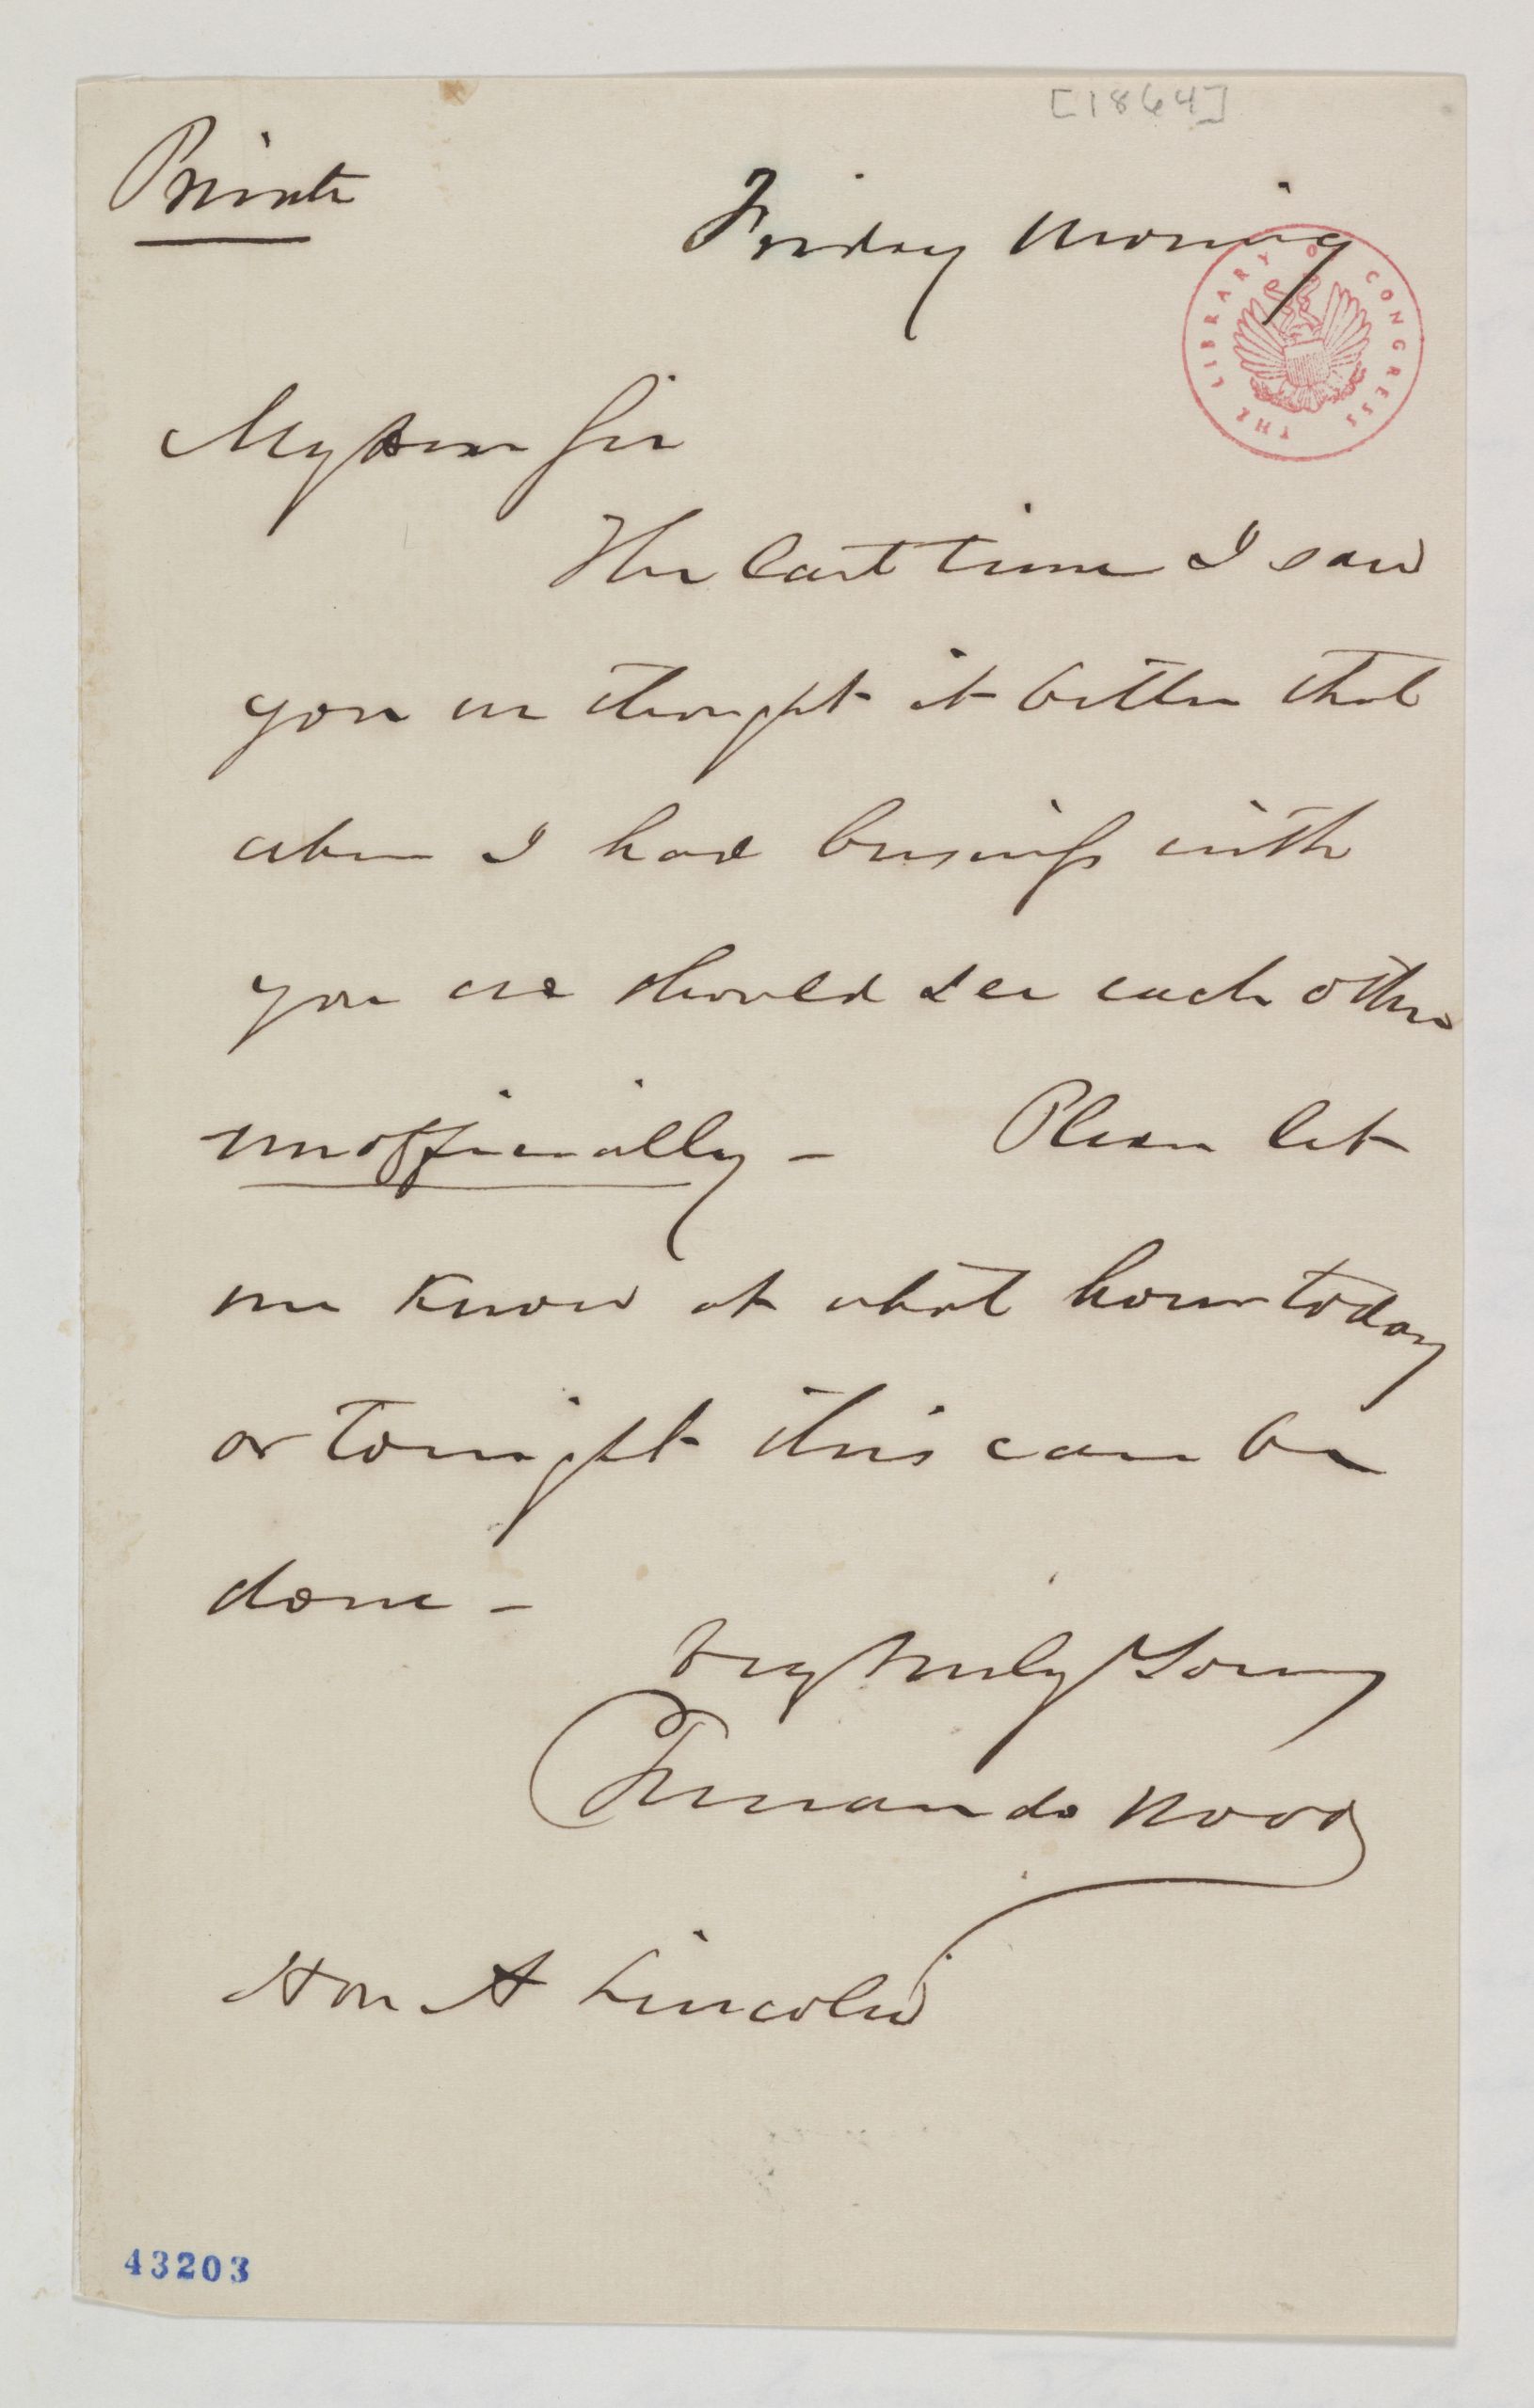 [1864]
Private
Friday Morning
THE LIBRARY OF CONGRESS
My dear Sir
The last time I saw
you we thought it better that
when I had business with
you we should see each other
unofficially – Please let
me know at what hour today
or tonight this can be
done –
Very truly Yours
Fernando Wood
Hon A Lincoln
43203